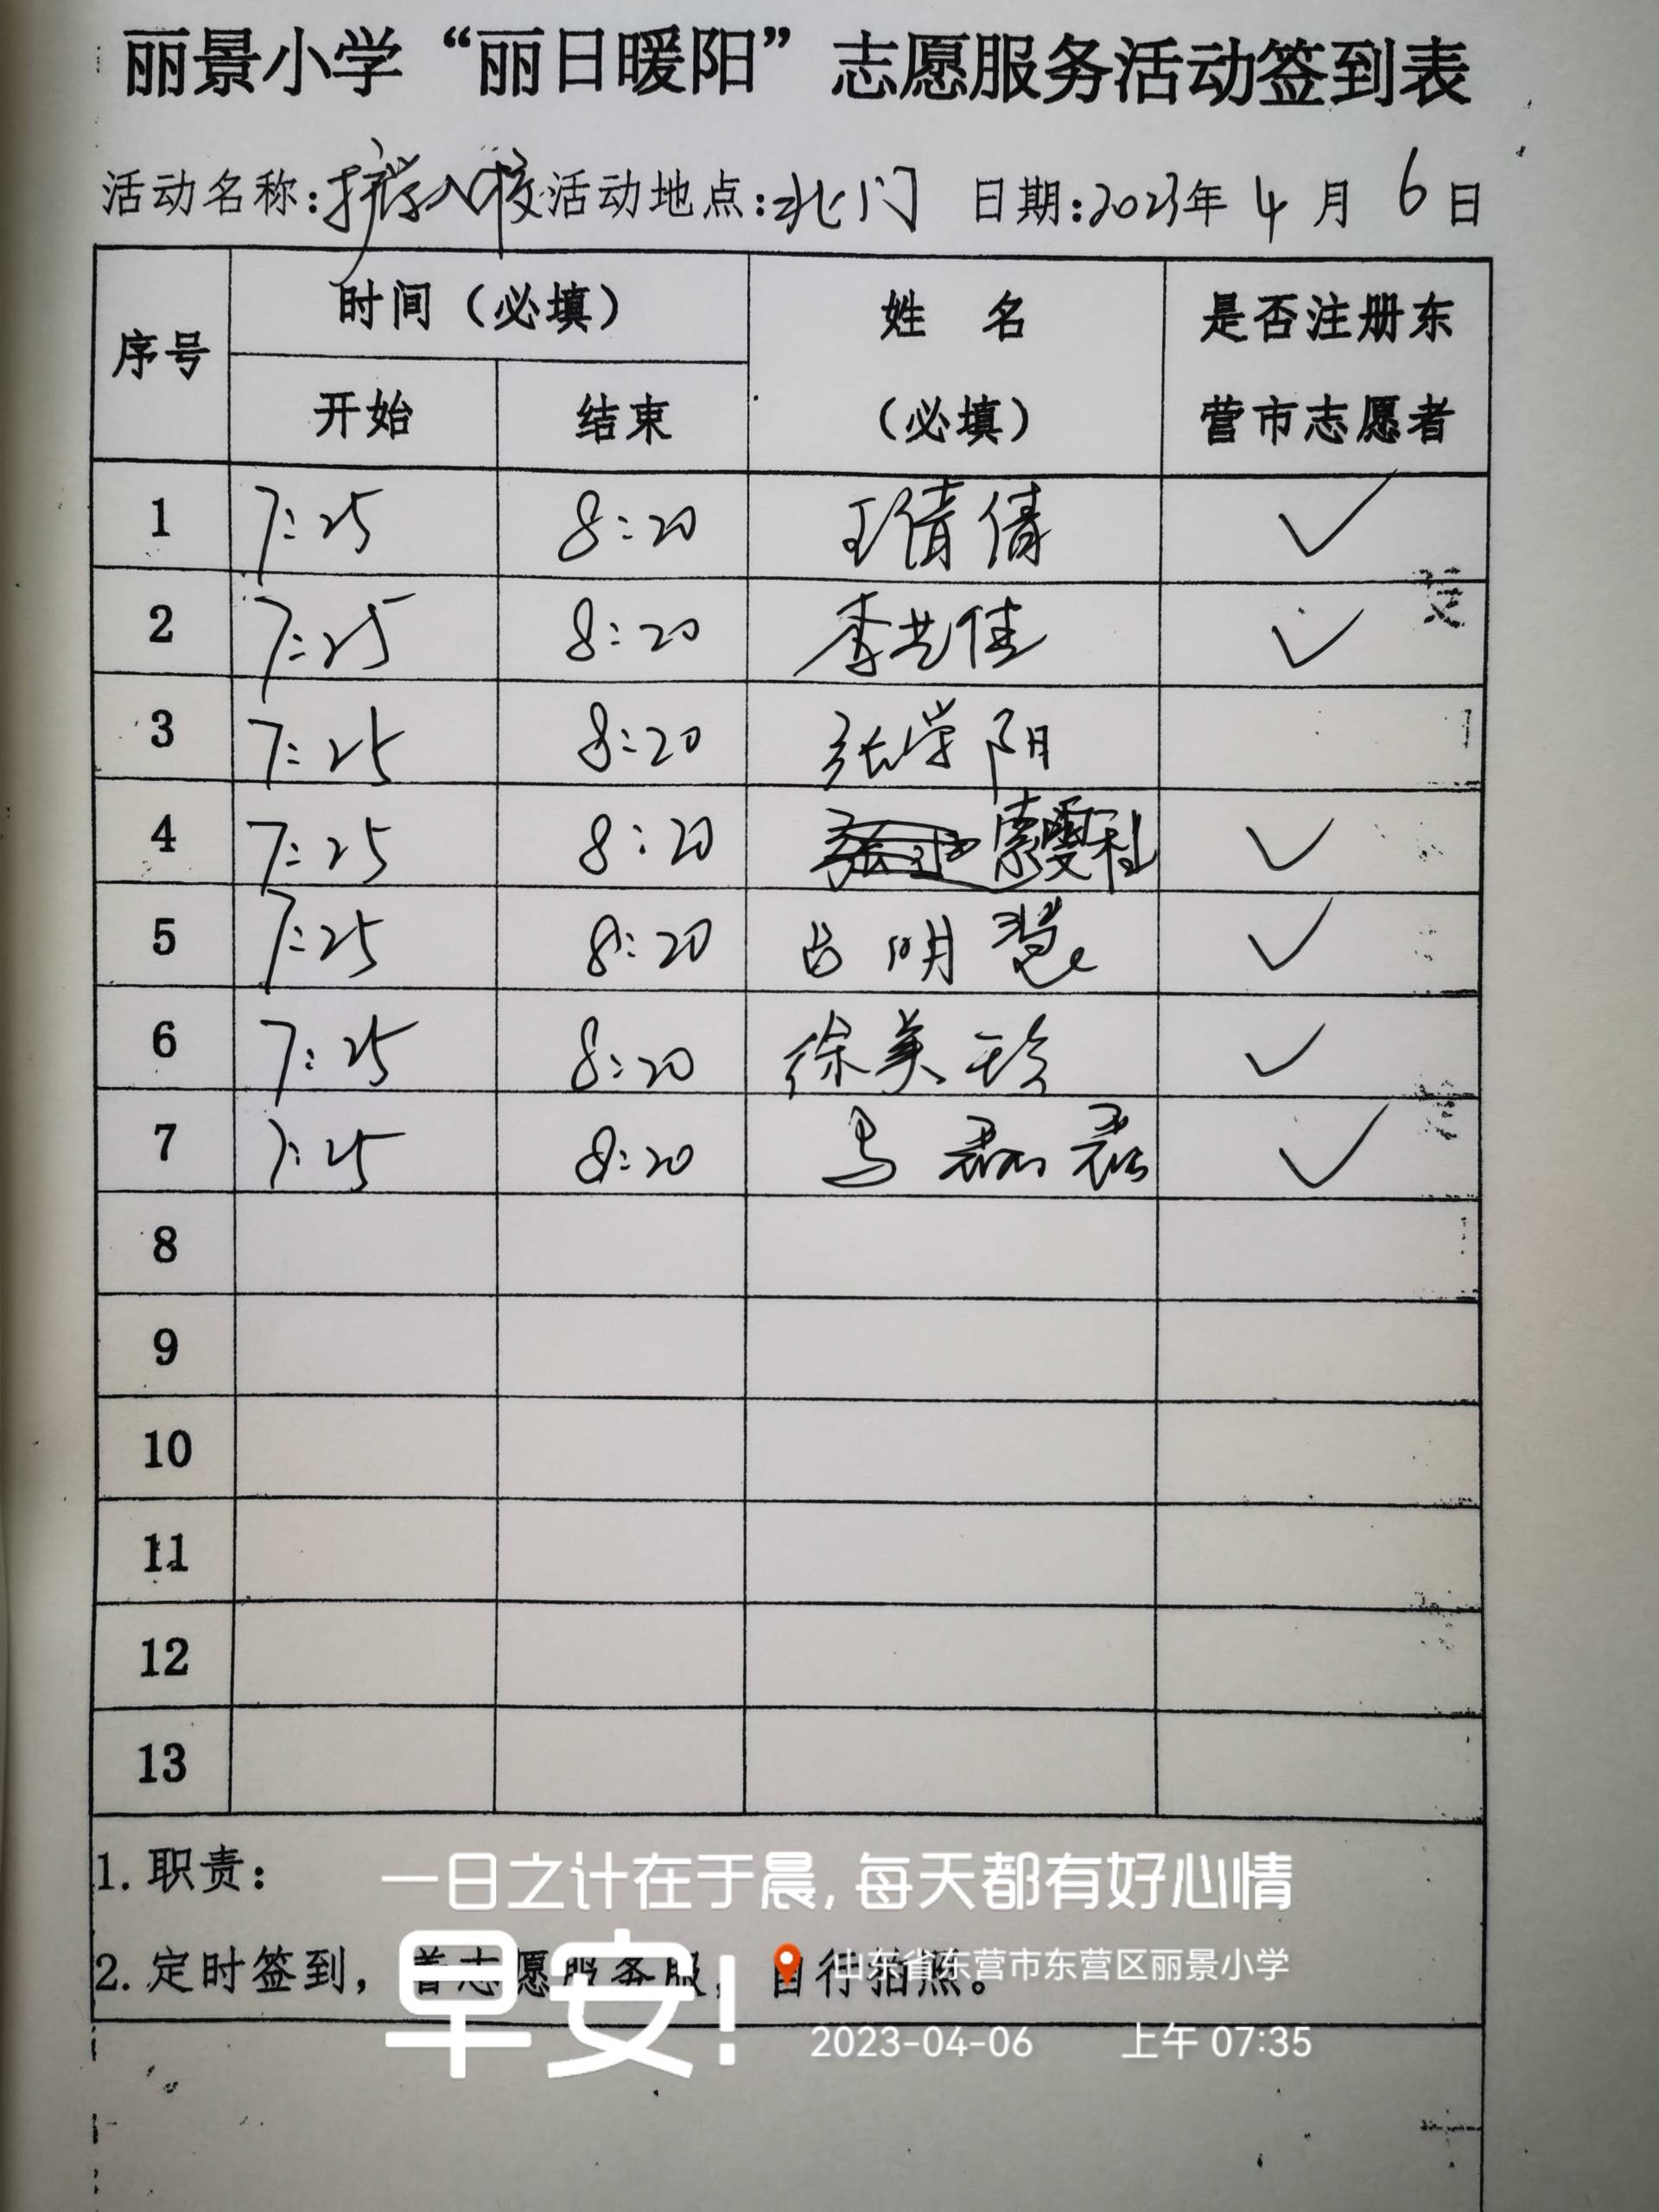 丽景小学“丽日暖阳”志愿服务活动签到表
活动名称:护学入校 活动地点:北门 日期:2023年 4 月 6 日
序号 时间（必填） 姓 名 是否注册东
开始 结束 （必填） 营市志愿者
1 7:25 8:20 王倩倩 ✓
2 7:25 8:20 李艺佳 ✓
3 7:25 8:20 张学阳
4 7:25 8:20 ✓
5 7:25 8:20 吕明慧 ✓
6 7:25 8:20 徐美珍 ✓
7 7:25 8:20 马 ✓
8
9
10
11
12
13
1.职责：
一日之计在于晨,每天都有好心情
2.定时签到，着志愿服务服，自行拍照。
早安!
山东省东营市东营区丽景小学
2023-04-06 上午 07:35